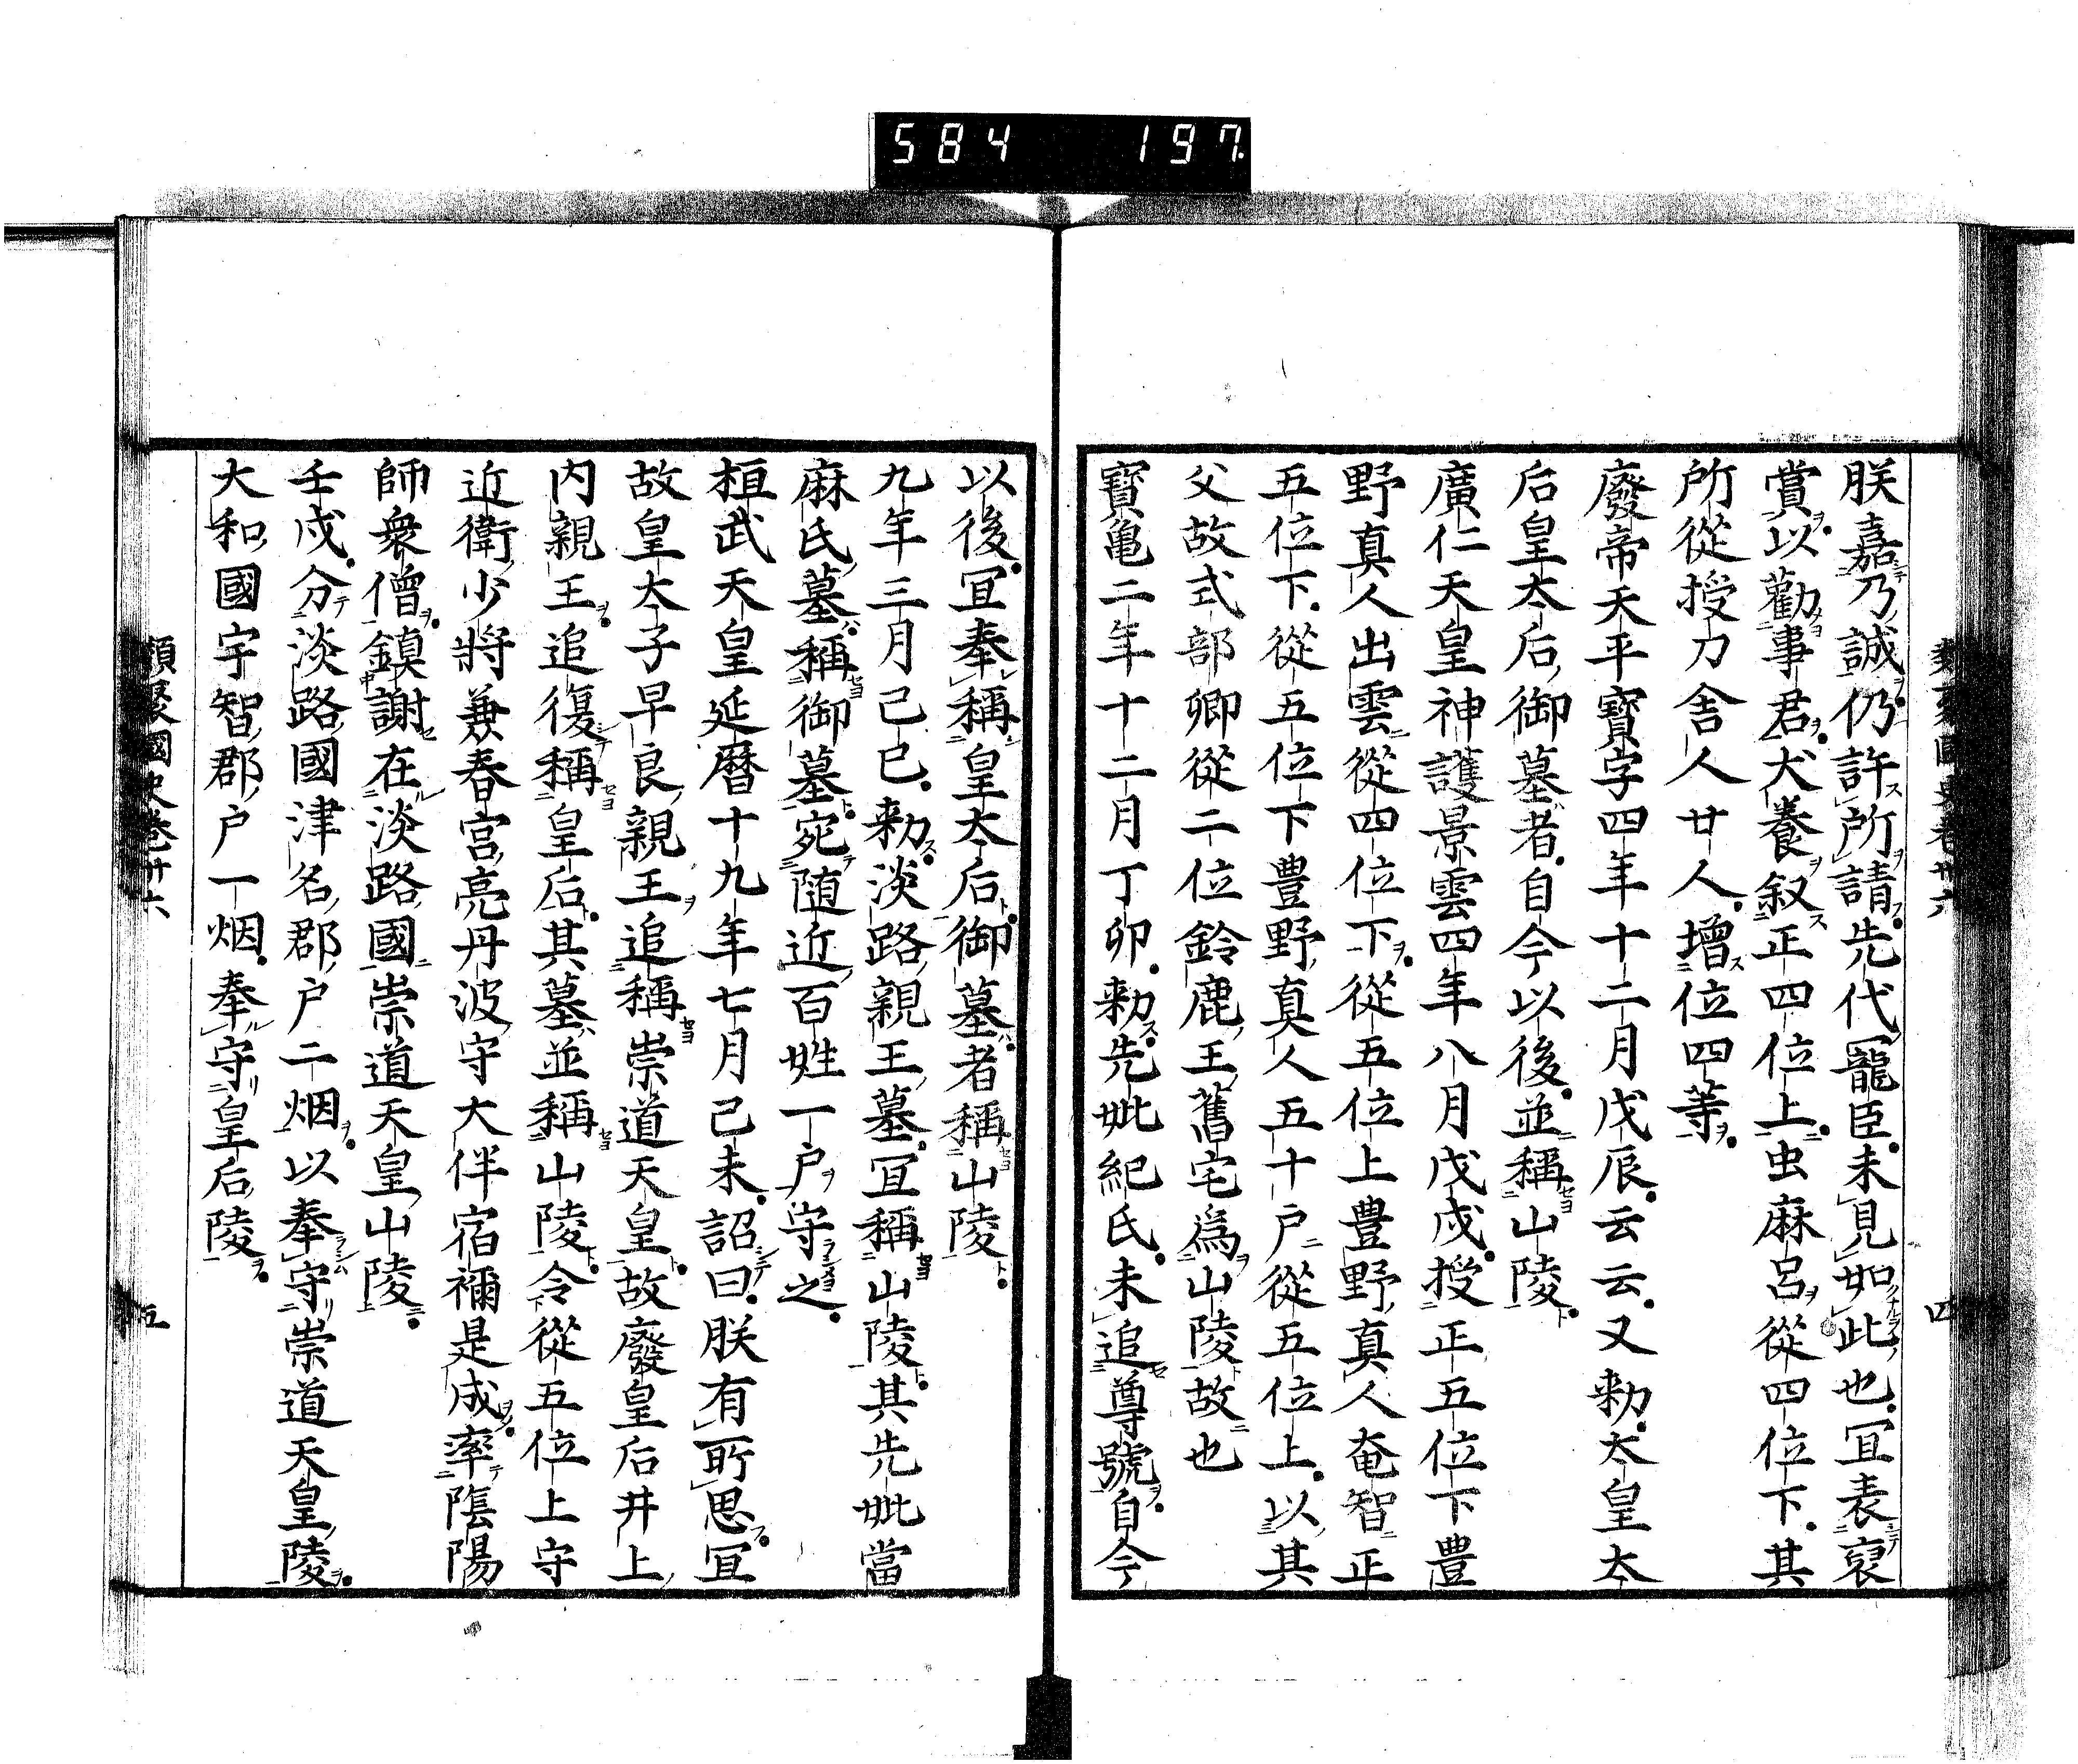 584 197
朕嘉乃誠仍許所請先代寵臣未見如此也宜表裒
賞以勸事君犬養叙正四位上虫麻呂從四位下其
所從授刀舍人廿人增位四等
廢帝天平寶字四年十二月戊辰云云又勅太皇太
后皇太后御墓者自今以後並稱山陵
廣仁天皇神護景雲四年八月戊戌授正五位下豊
野真人出雲從四位下從五位上豊野真人奄智正
五位下從五位下豊野真人五十戸從五位上以其
父故式部卿從二位鈴鹿王舊宅爲山陵故也
寳亀二年十二月丁卯勅先妣紀氏未追尊號自今
四
以後宜奉稱皇太后御墓者稱山陵
九年三月己巳勅淡路親王墓宜稱山陵其先妣當
麻氏墓稱御墓宛随近百姓一戸守之
桓武天皇延暦十九年七月己未詔曰朕有所思宜
故皇太子早良親王追稱崇道天皇故廢皇后井上
内親王追復稱皇后其墓並稱山陵令從五位上守
近衛少將兼春宮亮丹波守大伴宿禰是成率陰陽
師衆僧鎮謝在淡路國崇道天皇山陵
壬戌分淡路國津名郡戸二烟以奉守崇道天皇陵
大和國宇智郡戸一烟奉守皇后陵
類聚國史卷卅六
五